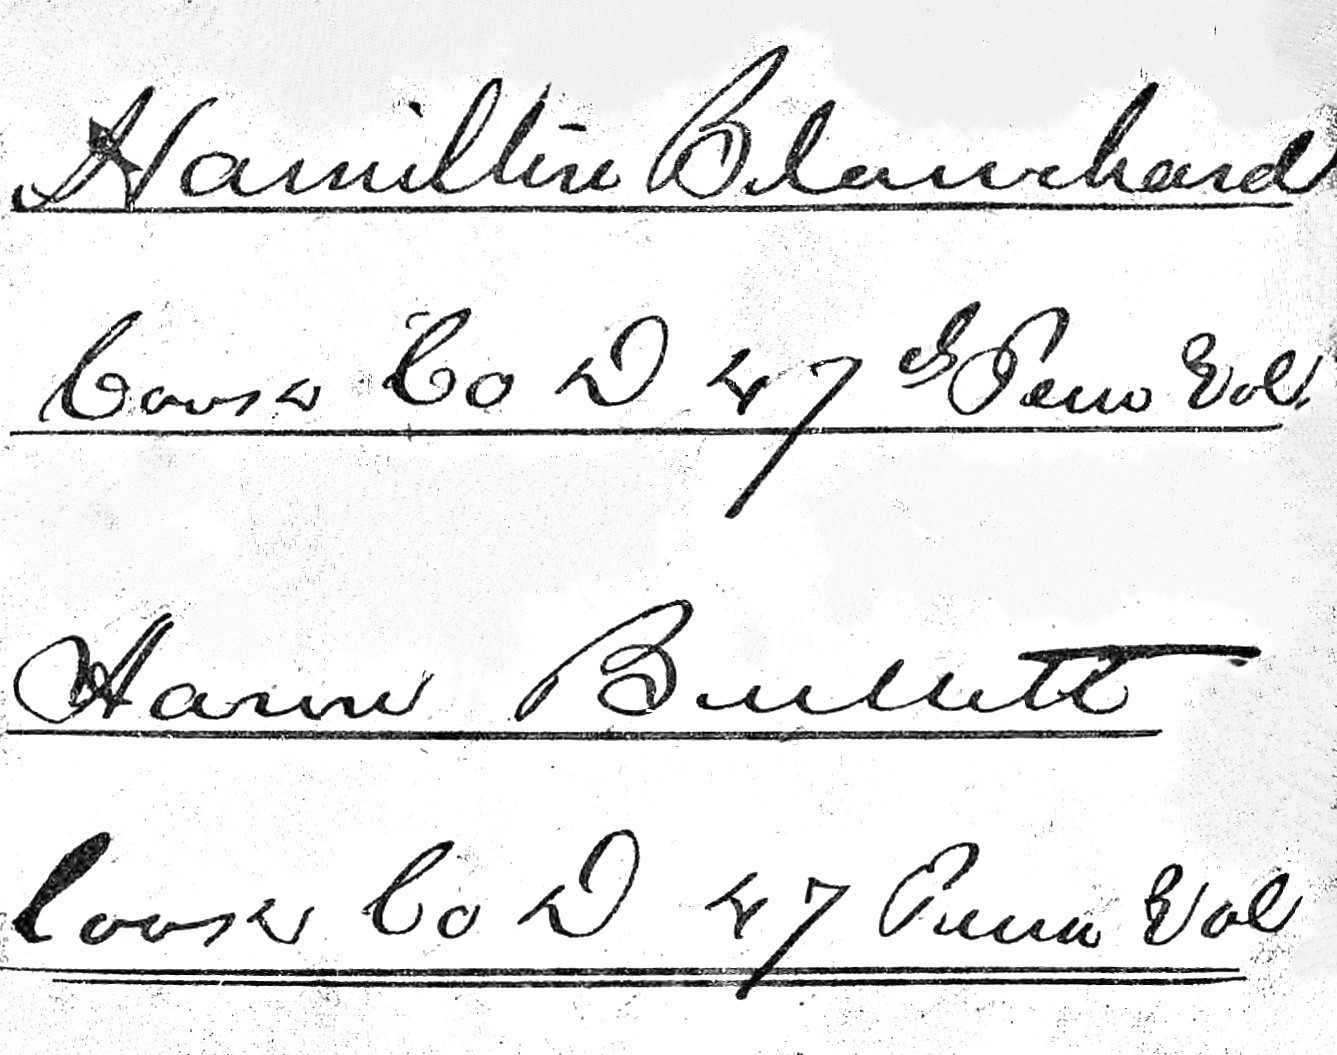 Hamilton Blanchard
Cook Co D 47th Penn Vol.
Aaron Bullett
Cook Co D 47 Penn Vol